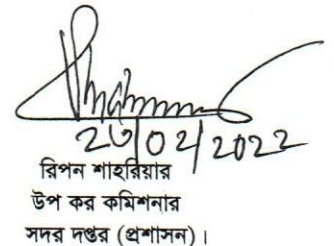 ২৩/০২/2022
রিপন শাহরিয়ার
উপ কর কমিশনার
সদর দপ্তর (প্রশাসন)।